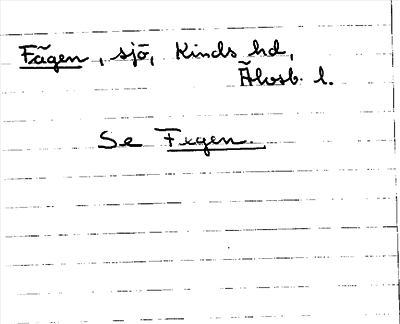 Fägen, sjö, Kinds hd,
Älvsb. l.
Se Fegen.